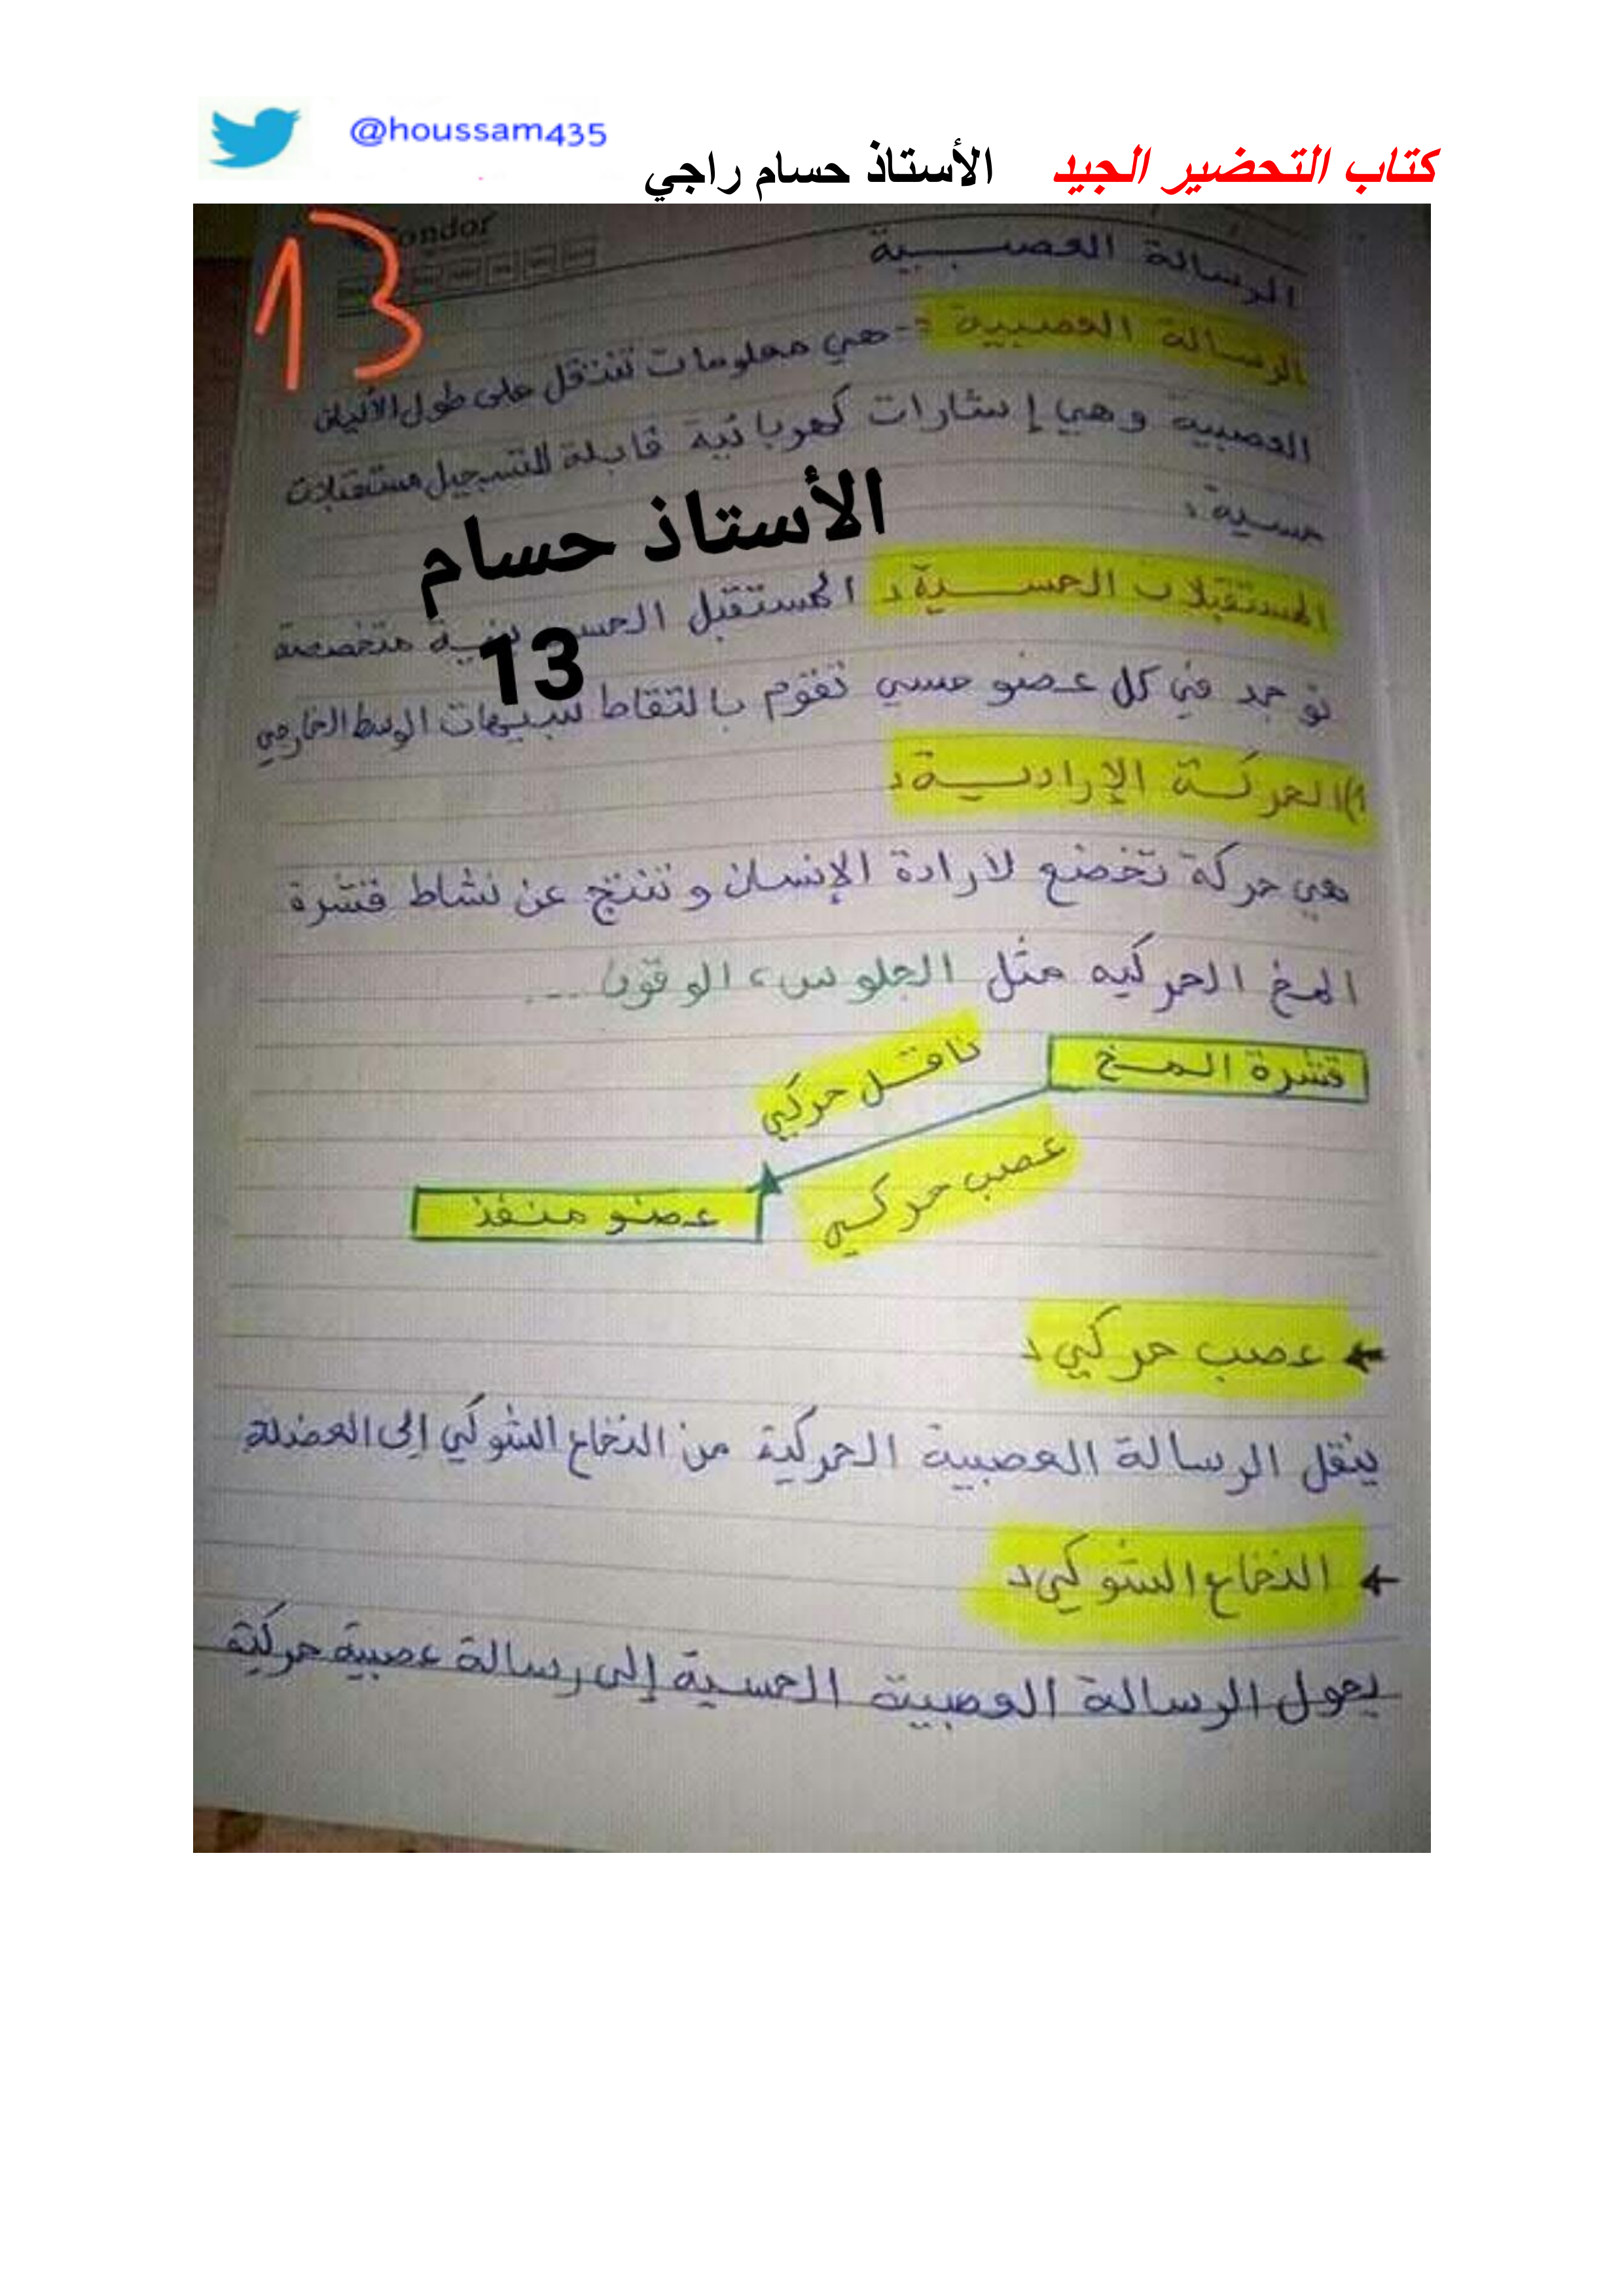 @houssam435
كتاب التحضير الجيد الأستاذ حسام راجي
13
Condor
الرسالة العصبية
الرسالة العصبية :- هي معلومات تنتقل على طول الألياف
العصبية وهي إشارات كهربائية قابلة للتسجيل مستقبلات
حسية:
الأستاذ حسام
13
المستقبلات الحسية: المستقبل الحسي بنية متخصصة
توجد في كل عضو حسي تقوم بالتقاط تنبيهات الوسط الخارجي
1)الحركة الإرادية:
هي حركة تخضع لارادة الإنسان و تنتج عن نشاط قشرة
المخ الحركيه مثل الجلوس، الوقوف ...
قشرة المخ
ناقل حركي
عصب حركي
عضو منفذ
← عصب حركي:
ينقل الرسالة العصبية الحركية من النخاع الشوكي إلى العضلة
← النخاع الشوكي:
يحول الرسالة العصبية الحسية إلى رسالة عصبية حركية